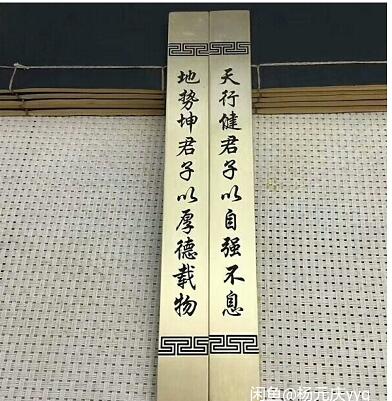 天行健君子以自强不息
地势坤君子以厚德载物
闲鱼@杨元庆yyq